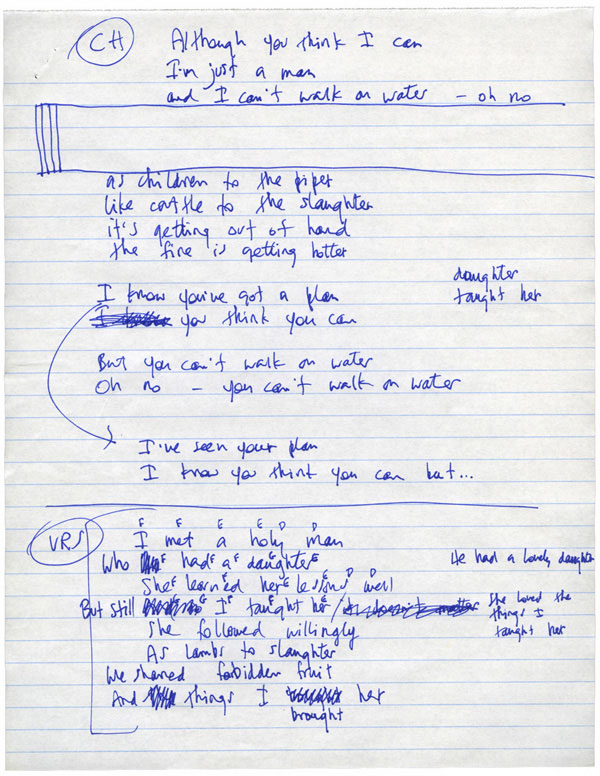 CH
Although you think I can
I'm just a man
and I can't walk on water - oh no
as children to the piper
like cattle to the slaughter
it's getting out of hand
the fire is getting hotter
daughter
taught her
I know you've got a plan
I you think you can
But you can't walk on water
Oh no - you can't walk on water
I've seen your plan
I know you think you can but...
VRS
E F E E D D
I met a holy man
Who had a daughter
He had a lovely daughter
She learned her lessons well
But still I taught her /
She loved the
things I
taught her
She followed willingly
As lambs to slaughter
We shared forbidden fruit
And things I her
brought